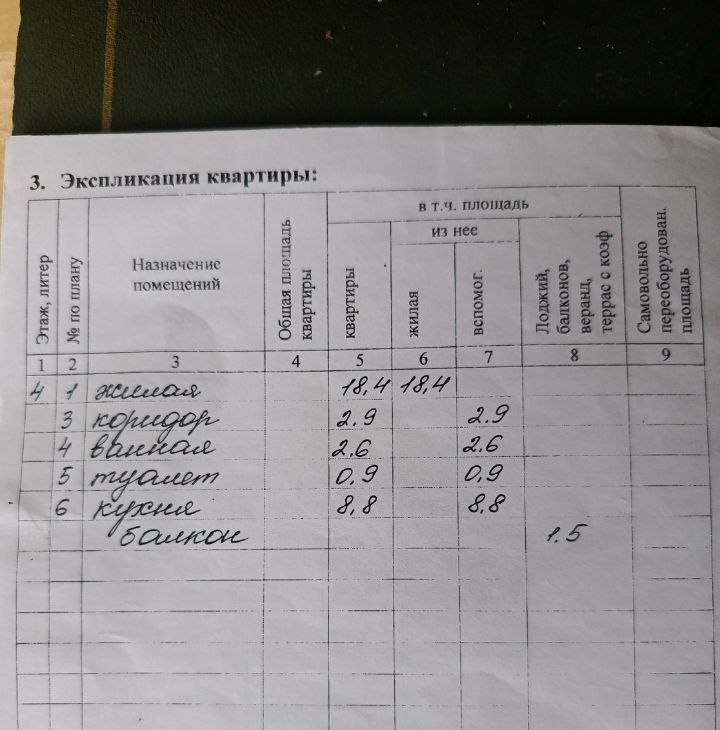 3. Экспликация квартиры:
Этаж, литер
№ по плану
Назначение
помещений
Общая площадь
квартиры
в т.ч. площадь
из нее
квартиры
жилая
вспомог.
Лоджий,
балконов,
веранд,
террас с коэф
Самовольно
переоборудован.
площадь
1 2 3 4 5 6 7 8 9
4 1 жилая 18,4 18,4
3 коридор 2.9 2.9
4 ванная 2.6 2.6
5 туалет 0,9 0,9
6 кухня 8,8 8,8
балкон 1.5